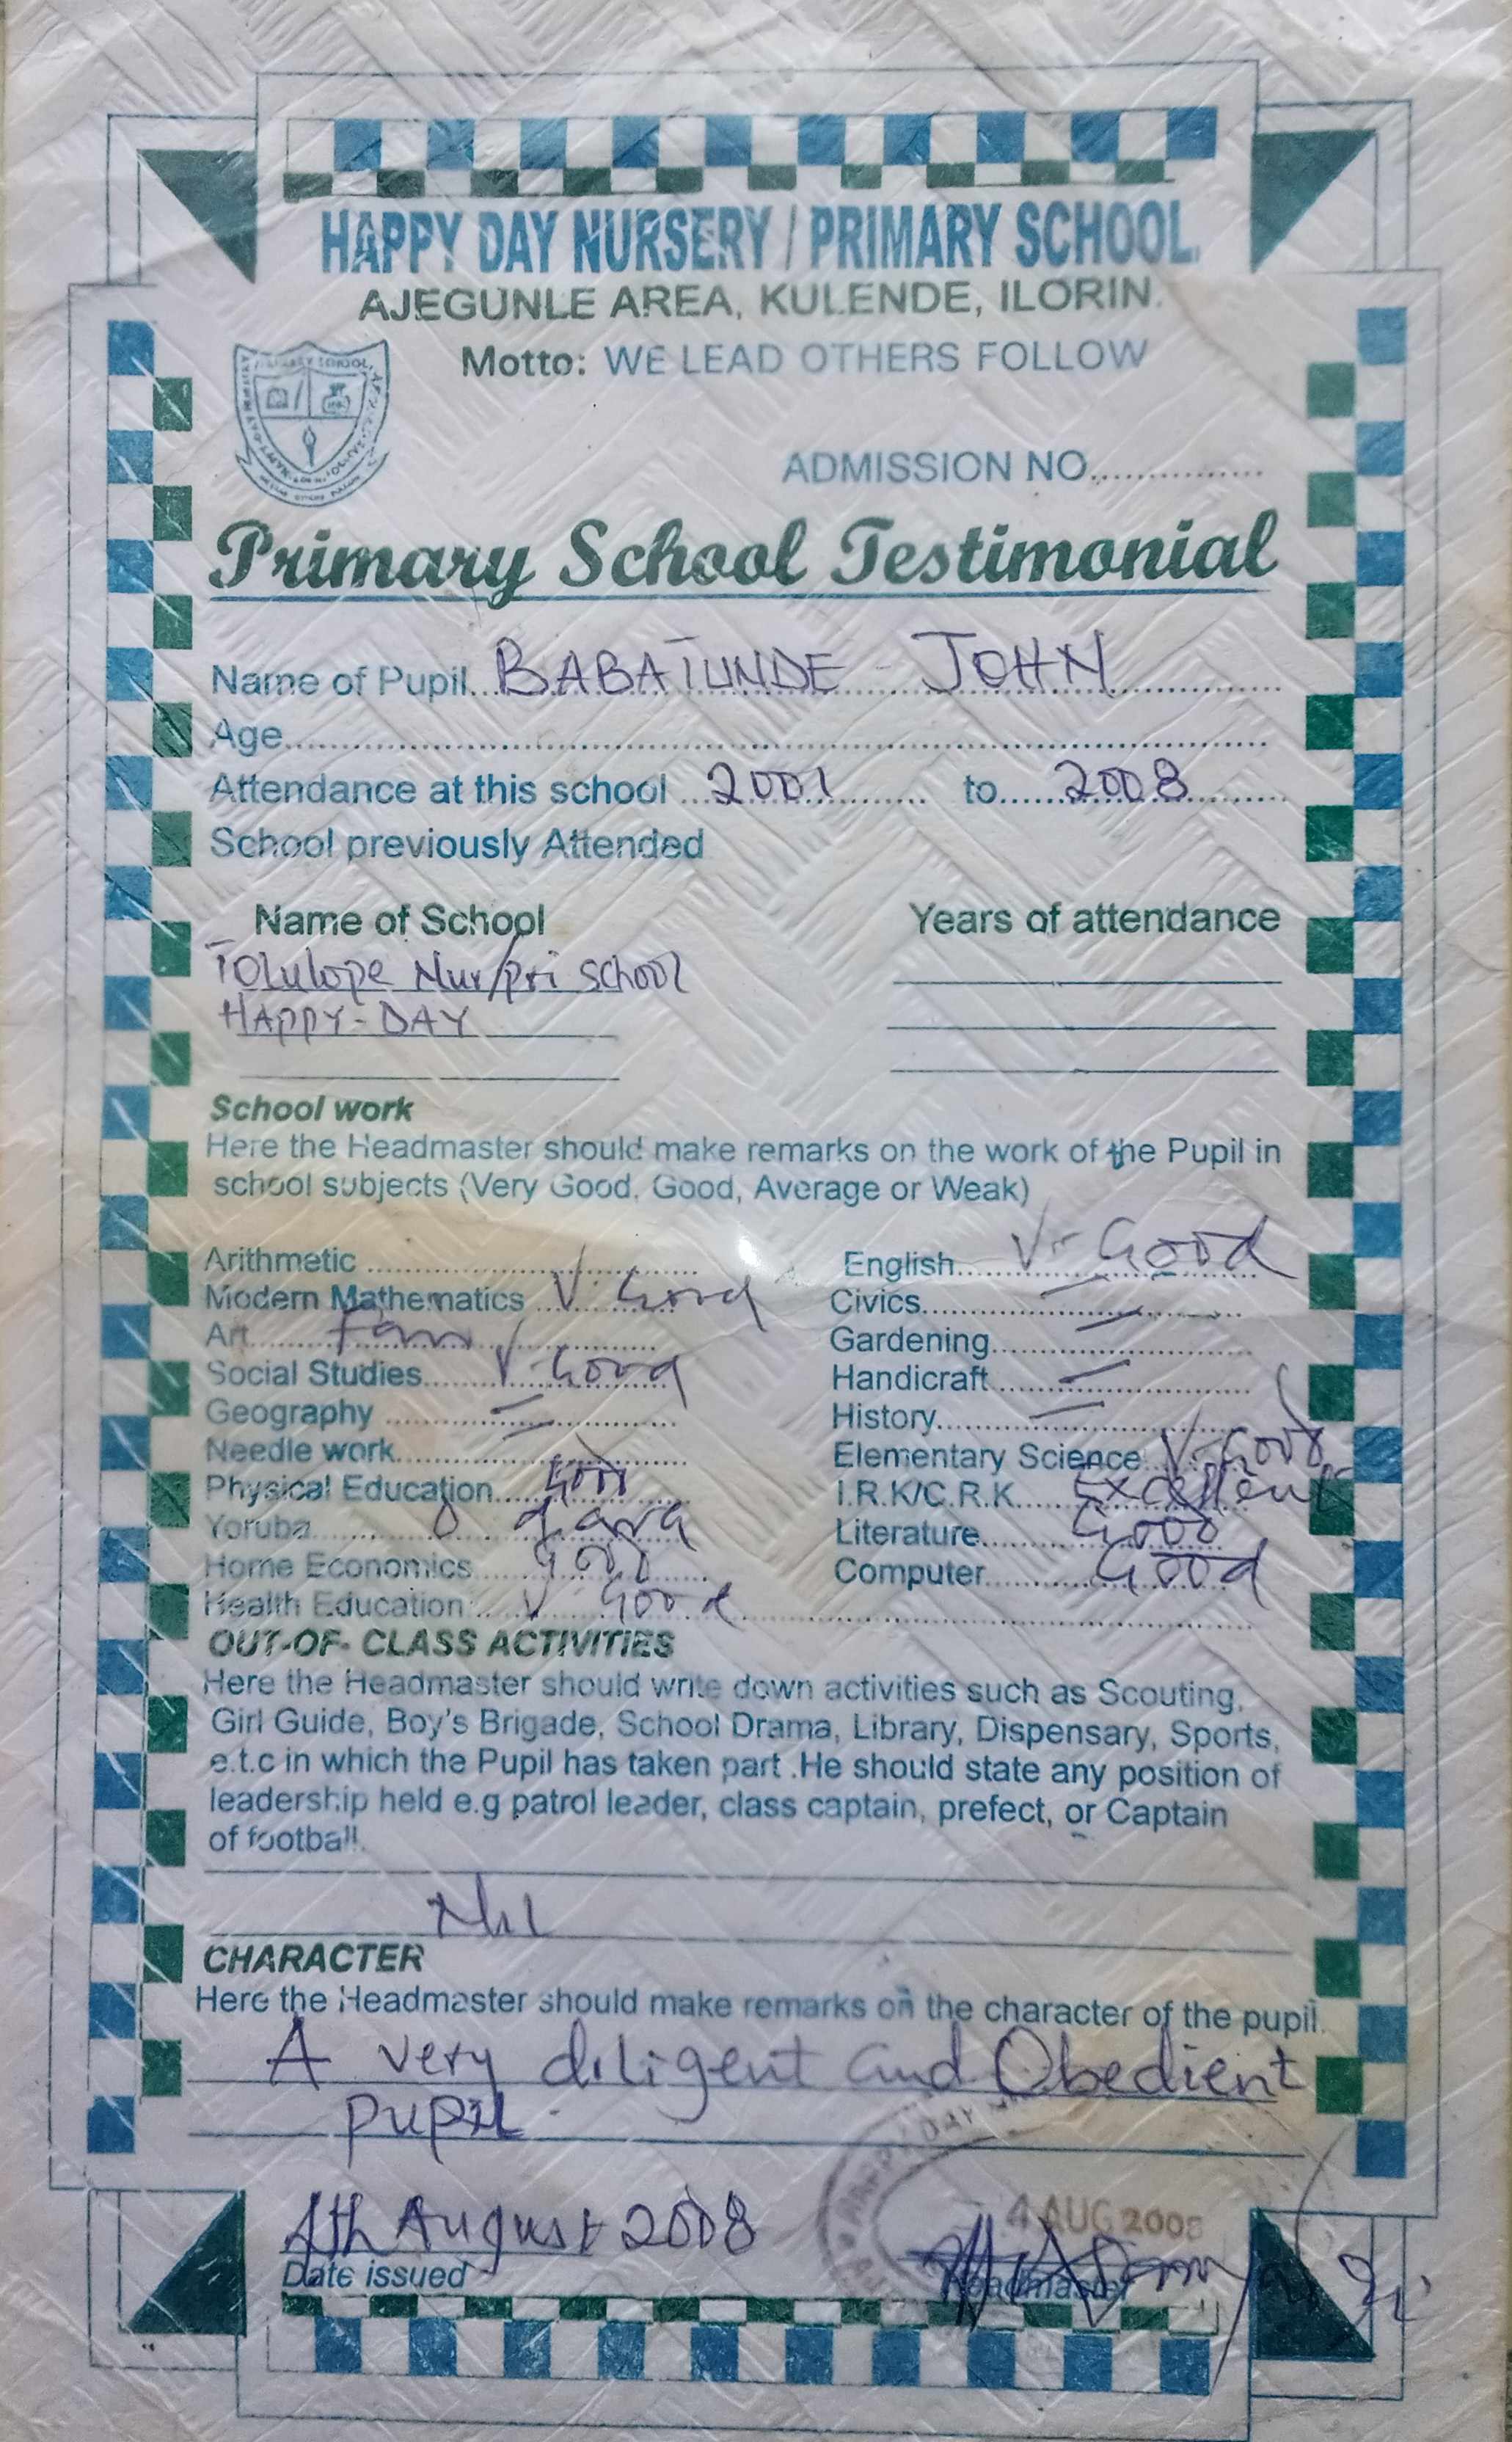 HAPPY DAY NURSERY / PRIMARY SCHOOL.
AJEGUNLE AREA, KULENDE, ILORIN.
Motto: WE LEAD OTHERS FOLLOW
ADMISSION NO..............
Primary School Testimonial
Name of Pupil...BABATUNDE - JOHN
Age
Attendance at this school ...2001... to...2008
School previously Attended
Name of School Years of attendance
Tolulope Nur/pri school
HAPPY-DAY
School work
Here the Headmaster should make remarks on the work of the Pupil in
school subjects (Very Good, Good, Average or Weak)
Arithmetic English V. Good
Modern Mathematics V. Good Civics
Art Fair Gardening
Social Studies V. Good Handicraft
Geography History
Needle work Elementary Science V. Good
Physical Education Good I.R.K/C.R.K Excellent
Yoruba Literature Good
Home Economics Good Computer Good
Health Education V Good
OUT-OF- CLASS ACTIVITIES
Here the Headmaster should write down activities such as Scouting,
Girl Guide, Boy's Brigade, School Drama, Library, Dispensary, Sports,
e.t.c in which the Pupil has taken part .He should state any position of
leadership held e.g patrol leader, class captain, prefect, or Captain
of football.
Nil
CHARACTER
Here the Headmaster should make remarks on the character of the pupil.
A very diligent and Obedient
pupil.
4th August 2008 4 AUG 2008
Date issued Headmaster